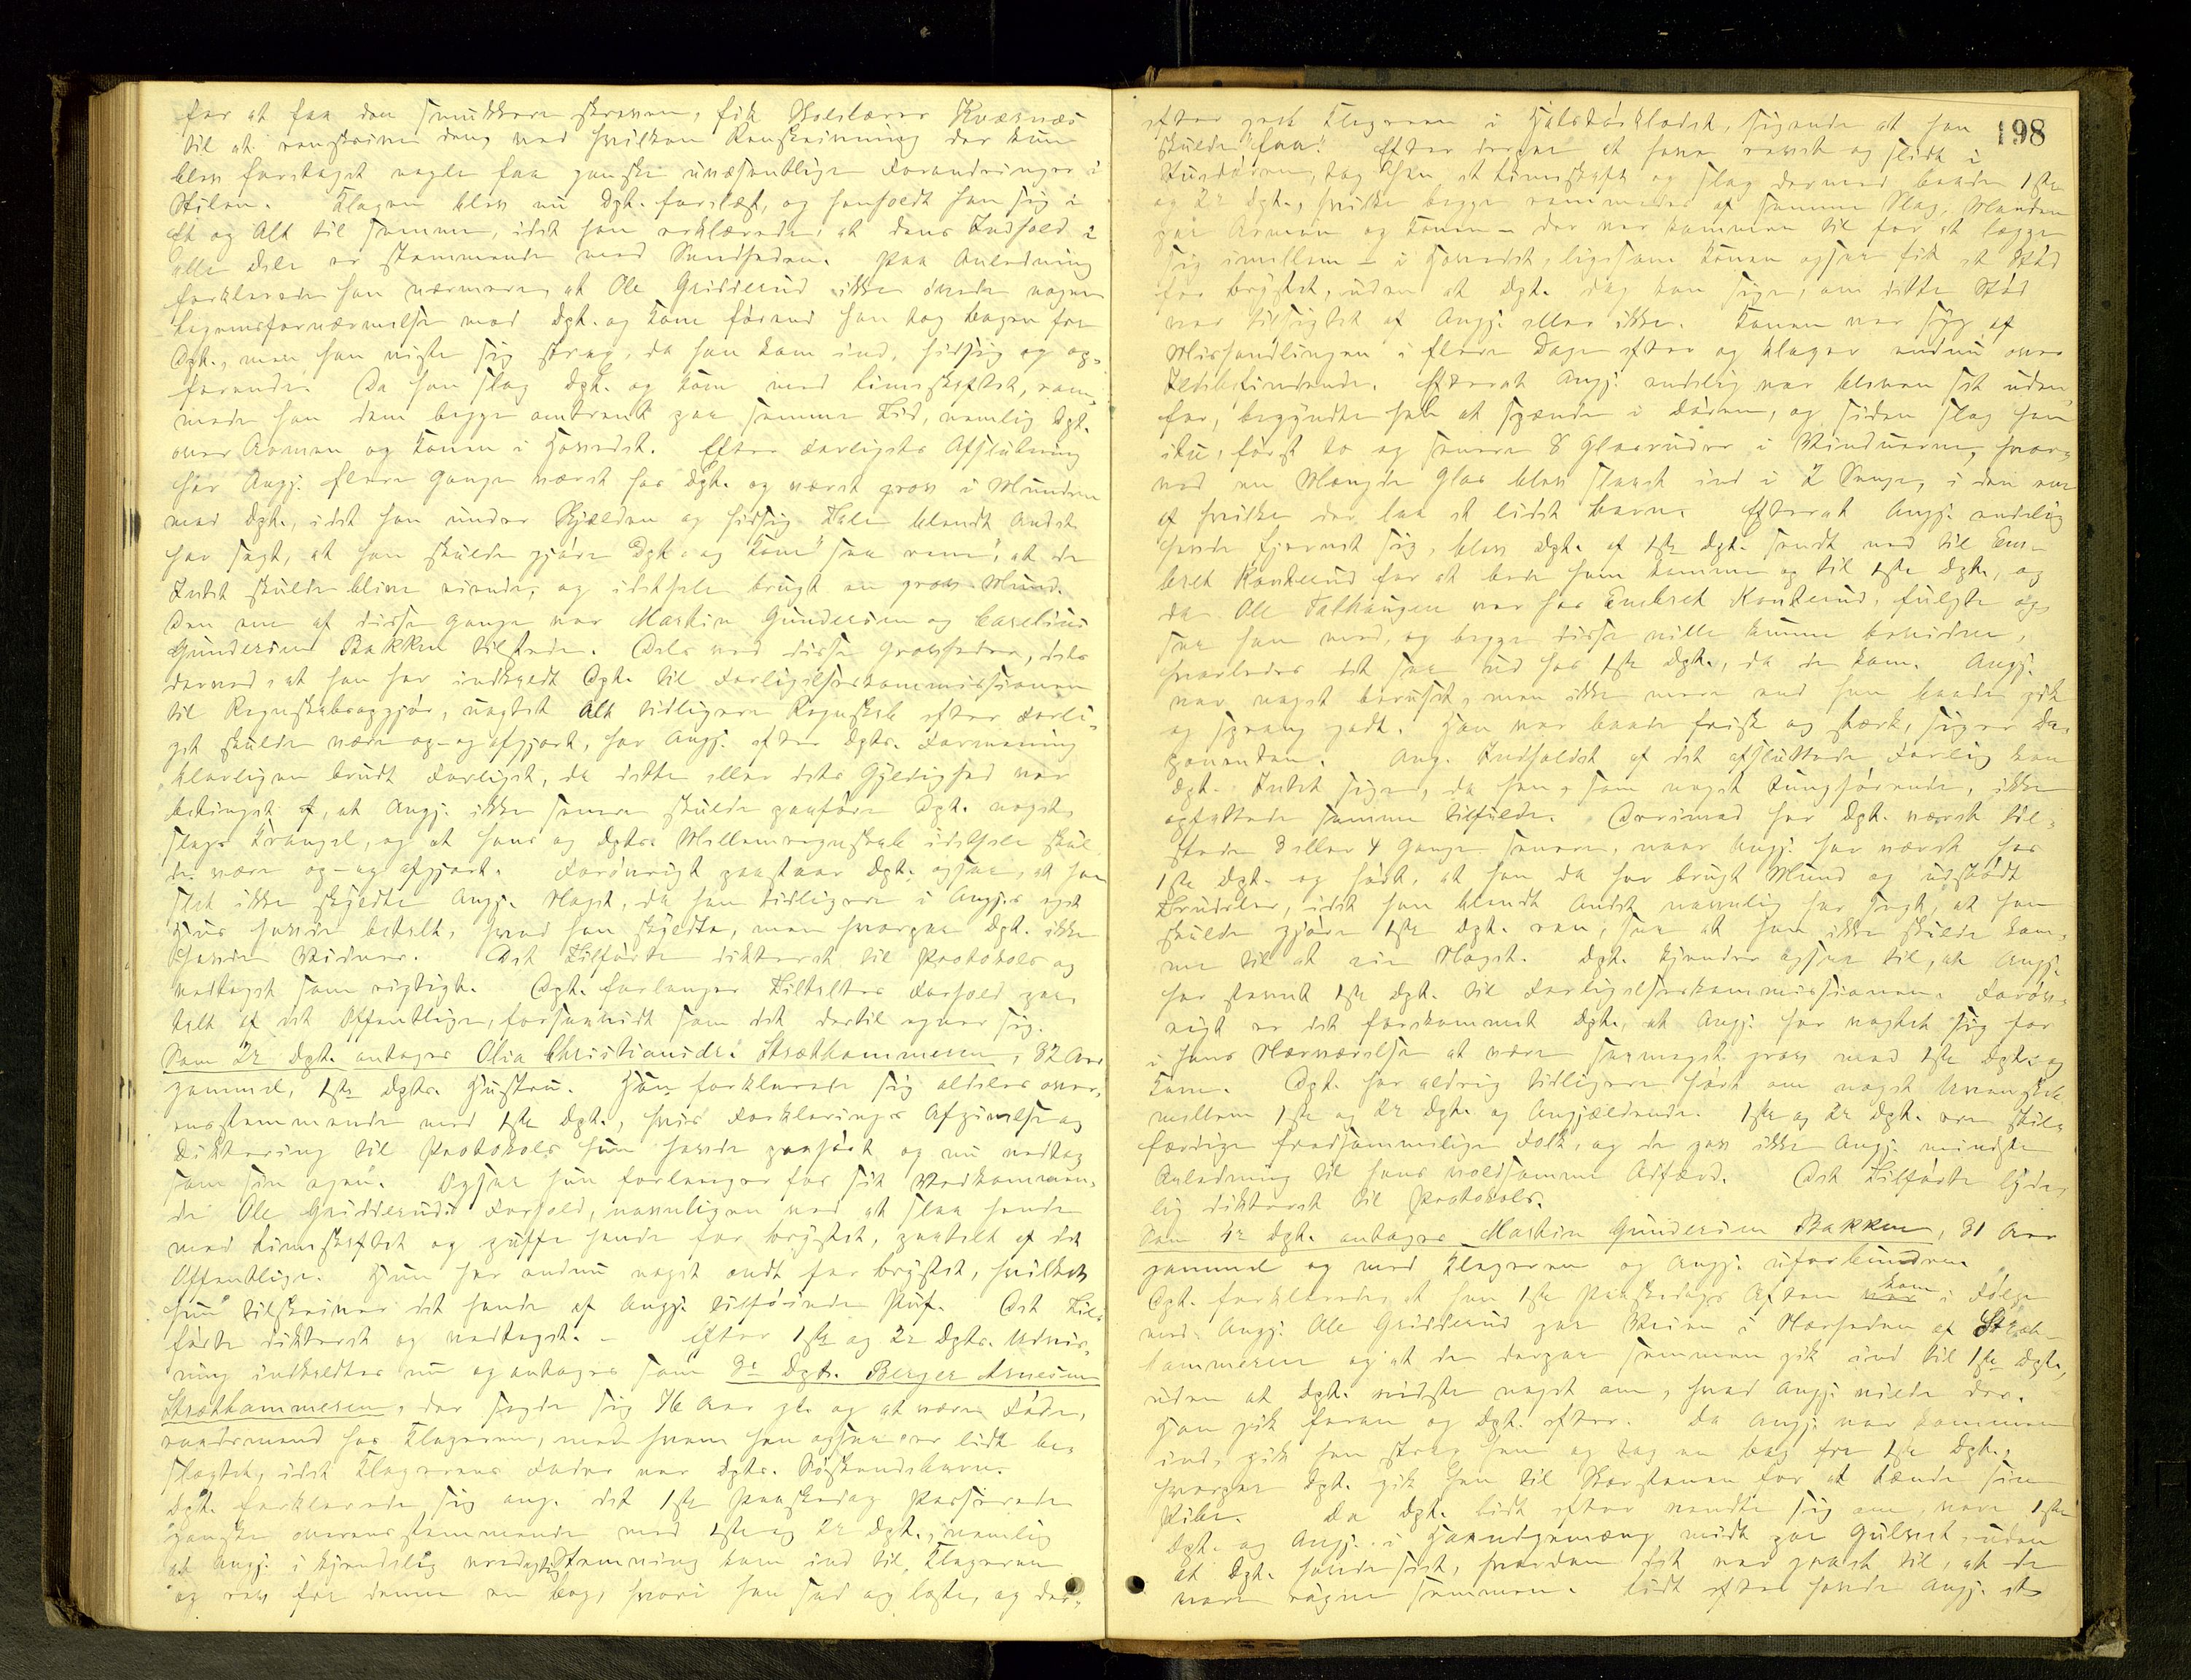 for at faa den smukkere skreven, fik Skolelærer Kvæsnæs
til at renskrive den, ved hvilken Renskrivning der kun
blev foretaget nogle faa ganske uvæsentlige Forandringer i
Stilen. Klagen blev nu Dpt. forelæst, og henholdt han sig i
Et og Alt til samme, idet han erklærede, at dens Indhold i
alle Dele er stemmende med Sandheden. Paa Anledning
forklarede han nærmere, at Ole Gridderud ikke øvede nogen
Legemsfornærmelse mod Dpt. og Kone førend han tog Bogen fra
Dpt., men han viste sig strax, da han kom ind, hidsig og op-
farende. Da han slog Dpt. og Kone med Limeskaftet, ram-
mede han dem begge omtrent paa samme Tid, nemlig Dpt.
over Armen og Konen i Hovedet. Efter Forligets Afslutning
har Angj. flere Gange været hos Dpt. og været grov i Munden
mod Dpt., idet han under Skjælden og hidsig Tale blandt Andet
har sagt, at han skulde gjøre Dpt. og Kone "saa rene", at de
Intet skulde blive eiende, og idethele brugt en grov Mund.
Den ene af disse Gange var Martin Gundersen og Carelius
Gundersen Bakken tilstede. Dels ved disse Grovheder, dels
derved, at han har indkaldt Dpt. til Forligelseskommissionen
til Regnskabsopgjør, uagtet Alt tidligere Regnskab efter Forli-
get skulde være op- og afgjort, har Angj. efter Dpts. Formening
klarligen brudt Forliget, da dette eller dets Gyldighed var
betinget af, at Angj. ikke senere skulde paaføre Dpt. noget
Slags Krangel, og at hans og Dpts. Mellemregnskab idethele skul-
de være op- og afgjort. Forøvrigt paastaar Dpt. ogsaa, at han
slet ikke skyldte Angj. Noget, da han tidligere i Angj.s eget
Hus havde betalt, hvad han skyldte, men hvorpaa Dpt. ikke
havde Vidner. Det Tilførte dikteret til Protokols og
vedtaget som rigtigt. Dpt. forlanger Tiltaltes Forhold paa-
talt af det Offentlige, forsaavidt som det dertil egner sig.
Som 2de Dpt. antages Olia Christiansdr. Stræthammeren, 32 Aar
gammel, 1ste Dpts. Hustru. Hun forklarede sig aldeles over-
ensstemmende med 1ste Dpt., hvis Forklarings Afgivelse og
Diktering til Protokols hun havde paahørt og nu vedtog
som sin egen. Ogsaa hun forlanger for sit Vedkommen-
de Ole Gridderuds Forhold, navnligen ved at slaa hende
med Limeskaftet og puffe hende for Brystet, paatalt af det
Offentlige. Hun har endnu noget ondt for Brystet, hvilket
hun tilskriver det hende af Angj. tilføiede Puf. Det Til-
førte dikteret og vedtaget. – Efter 1ste og 2de Dpts. Udvis-
ning indkaldtes nu og antages som 3de Dpt. Berger Arnesen
Stræthammeren, der sagde sig 76 Aar gl. og at være Føde-
raadsmand hos Klageren, med hvem han ogsaa er lidt be-
slægtet, idet Klagerens Fader var Dpts. Søskendebarn.
Dpt. forklarede sig ang. det 1ste Paaskedag Passerede
ganske overensstemmende med 1ste og 2de Dpt., nemlig
at Angj. i kjendelig vredagtig Stemning kom ind til Klageren
og rev fra denne en Bog, hvori han sad og læste, og der-
198
efter greb Klageren i Halstørklædet, sigende at han
skulde "faa". Efter derpaa at have revet og slidt i
Husdøren, tog han et Limeskaft og slog dermed baade 1ste
og 2de Dpt., hvilke begge rammedes af samme Slag, Manden
paa Armen og Konen – der var kommen til for at lægge
sig imellem – i Hovedet, ligesom Konen ogsaa fik et Stød
for Brystet, uden at Dpt. dog kan sige, om dette Stød
var tilsigtet af Angj. eller ikke. Konen var syg af
Mishandlingen i flere Dage efter og klager endnu over
Ildebefindende. Efterat Angj. endelig var bleven sat uden-
for, begyndte han at spænde i Døren, og siden slog han
itu, først to og senere 8 Glasruder i Vinduerne, hvor-
ved en Mængde Glas blev slaaet ind i 2 Senge, i den ene
af hvilke der laa et lidet Barn. Efterat Angj. endelig
havde fjernet sig, blev Dpt. af 1ste Dpt. sendt ned til Em-
bret Konterud for at bede ham komme op til 1ste Dpt., og
da Ole Falhaugen var hos Embret Konterud, fulgte og-
saa han med, og begge disse ville kunne bevidne,
hvorledes det saa ud hos 1ste Dpt., da de kom. Angj.
var noget beruset, men ikke mere end han baade gik
og sprang godt. Han var baade frisk og stærk, siger De-
ponenten. Ang. Indholdet af det afsluttede Forlig kan
Dpt. Intet sige, da han, som noget tunghørende, ikke
opfattede samme tilfulde. Derimod har Dpt. været til-
stede 3 eller 4 Gange senere, naar Angj. har været hos
1ste Dpt. og hørt, at han da har brugt Mund og udstødt
Trudsler, idet han blandt Andet navnlig har sagt, at han
skulde gjøre 1ste Dpt. ren, saa at han ikke skulde kom-
me til at eie Noget. Dpt. kjender ogsaa til, at Angj.
har stevnt 1ste Dpt. til Forligelseskommissionen. Forøv-
rigt er det forekommet Dpt., at Angj. har vogtet sig for
i hans Nærværelse at være saameget grov mod 1ste Dpt. og
Kone. Dpt. har aldrig tidligere hørt om noget Uvenskab
mellem 1ste og 2de Dpt. og Angjældende. 1ste og 2de Dpt. ere skik-
færdige fredsommelige Folk, og de gav ikke Angj. mindste
Anledning til hans voldsomme Adfærd. Det Tilførte lyde-
lig dikteret til Protokols.
Som 4de Dpt. antages Martin Gundersen Bakken, 31 Aar
gammel og med Klageren og Angj. uforbunden.
Dpt. forklarede, at han 1ste Paaskedags Aften kom i Følge
med Angj. Ole Gridderud paa Veien i Nærheden af Stræt-
hammeren og at de derpaa sammen gik ind til 1ste Dpt.,
uden at Dpt. vidste noget om, hvad Angj. vilde der.
Han gik foran og Dpt. efter. Da Angj. var kommen
ind, gik han strax hen og tog en Bog fra 1ste Dpt.,
hvorpaa Dpt. gik hen til Skorstenen for at tænde sin
Pibe. Da Dpt. lidt efter vendte sig om, vare 1ste
Dpt. og Angj. i Haandgemæng midt paa Gulvet, uden
at Dpt. havde seet, hvordan det var gaaet til, at de
vare ragne sammen. Lidt efter havde Angj. et